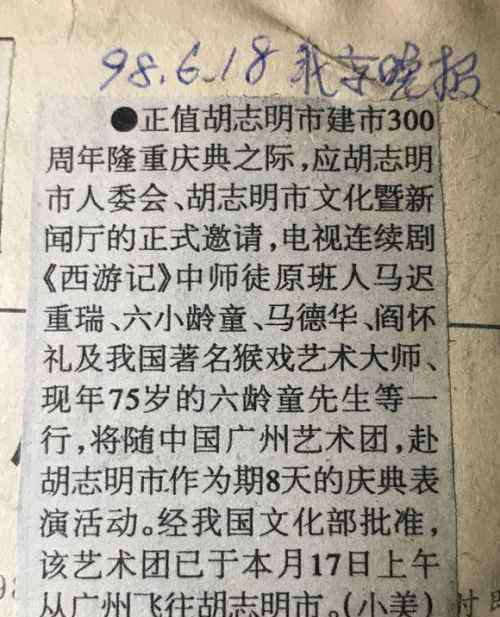 98.6.18 北京晚报
●正值胡志明市建市300
周年隆重庆典之际,应胡志明
市人委会、胡志明市文化暨新
闻厅的正式邀请,电视连续剧
《西游记》中师徒原班人马迟
重瑞、六小龄童、马德华、阎怀
礼及我国著名猴戏艺术大师、
现年75岁的六龄童先生等一
行,将随中国广州艺术团,赴
胡志明市作为期8天的庆典表
演活动。经我国文化部批准,
该艺术团已于本月17日上午
从广州飞往胡志明市。(小美)